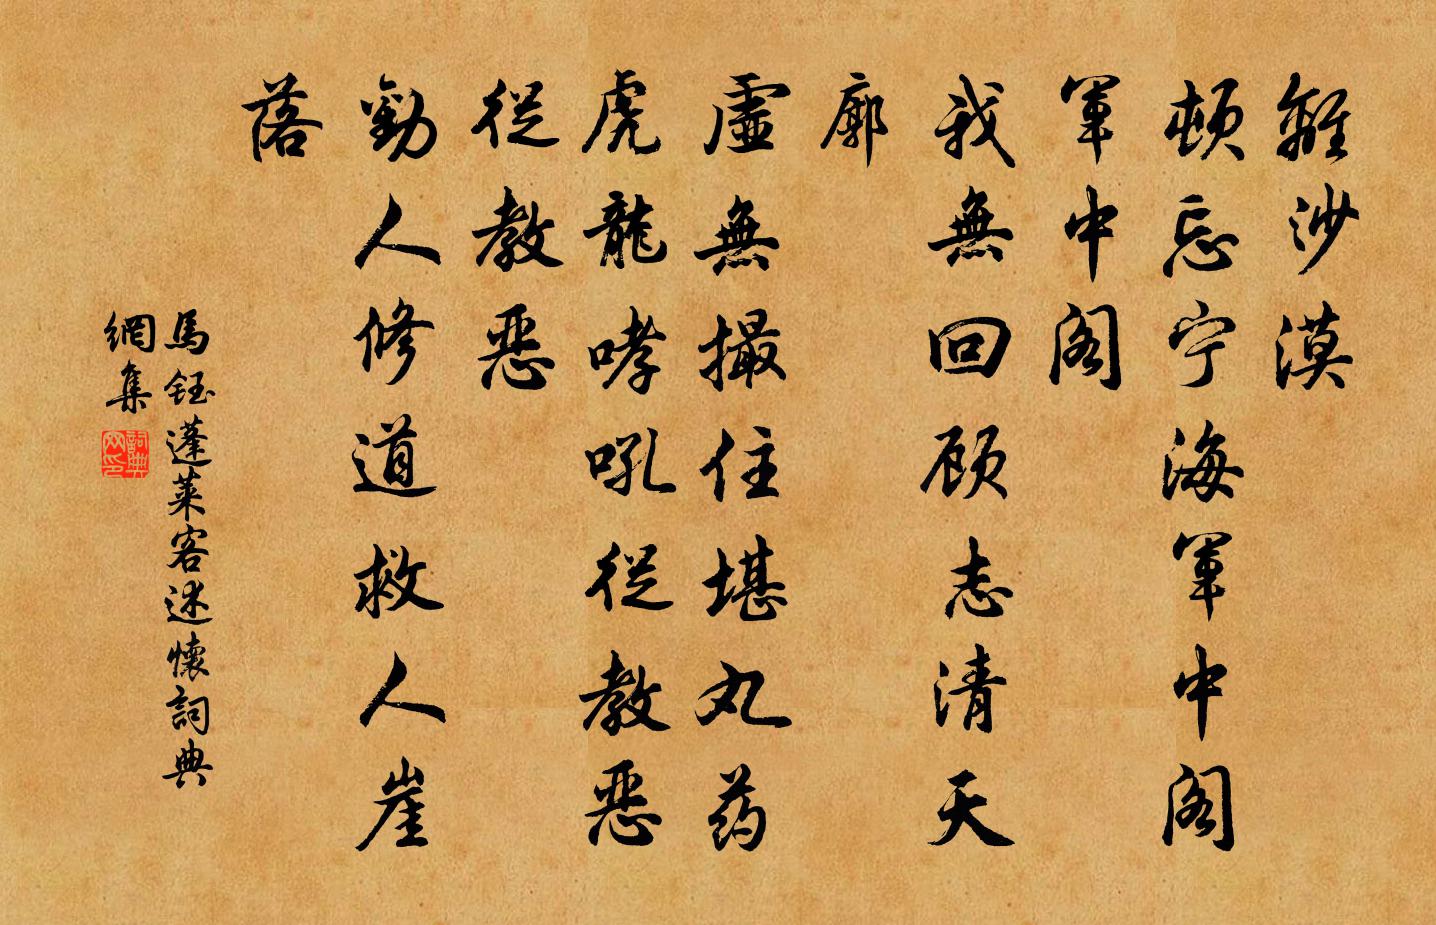 離沙漠
頓忘宁海軍中閣
軍中閣
我無回顾志清天
廓
虛無撮住堪丸药
虎龍哮吼從教惡
從教惡
勸人修道救人崖
落
馬鈺蓬萊客述懷詞典
網集
詞典
网印